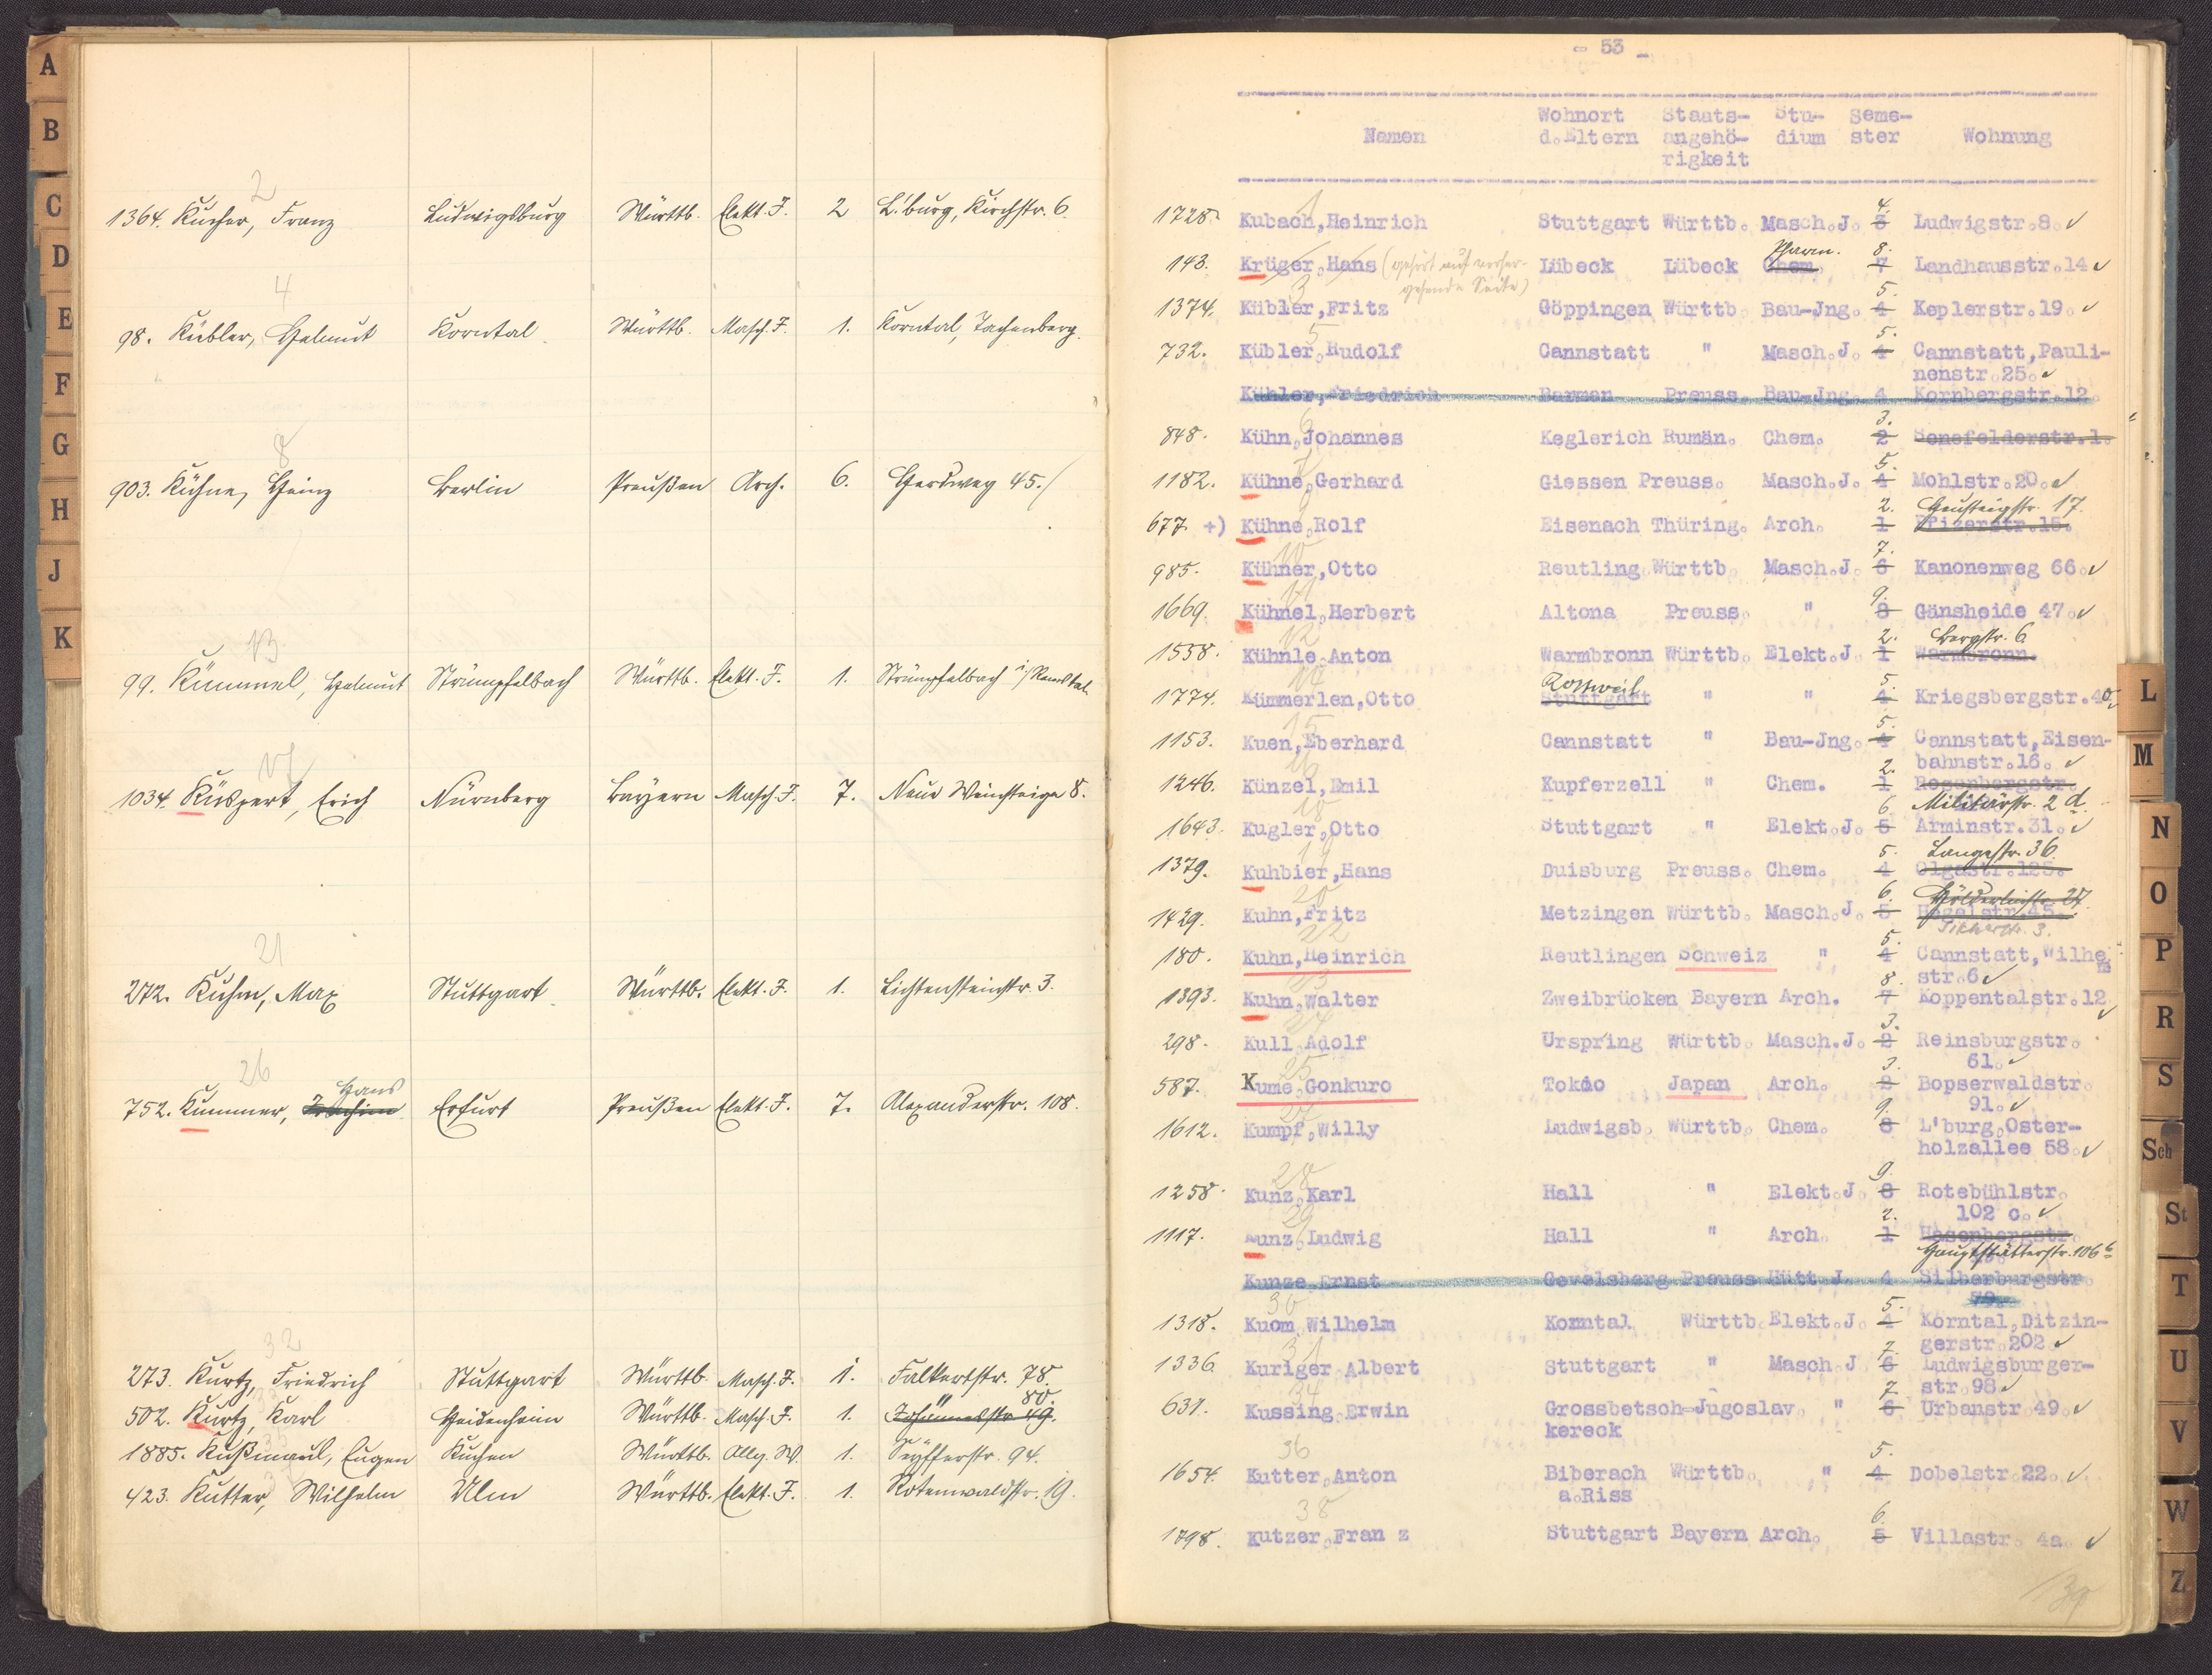 A
B
C
D
E
F
G
H
J
K
2
1364. Kucher, Franz Ludwigsburg Württb. Elekt. J. 2 L'burg, Kirchstr. 6.
4
98. Kübler, Helmut Korntal Württb. Masch. J. 1. Korntal,
8
903. Kühne, Heinz Berlin Preußen Arch. 6. Herdweg 45.
13
99. Kümmel, Helmut Strümpfelbach Württb. Elekt. J. 1. Strümpfelbach i/Remstal.
17
1034. Küspert, Erich Nürnberg Bayern Masch. J. 7. Neue Weinsteige 8.
21
272. Kuhn, Max Stuttgart Württb. Elekt. J. 1. Lichtensteinstr. 3.
26
Hans
752. Kummer, Joachim Erfurt Preußen Elekt. J. 7. Alexanderstr. 108.
32
273. Kurtz, Friedrich Stuttgart Württb. Masch. J. 1. Falkertstr. 78.
80.
502. Kurtz, Karl Heidenheim Württb. Masch. J. 1. Johannesstr. 49.
35
1885. Kußmaul, Eugen Kuchen Württb. Allg. W. 1. Seyfferstr. 94.
423. Kutter, Wilhelm Ulm Württb. Elekt. J. 1. Rotenwaldstr. 19.
- 53 -
Wohnort Staats- Stu- Seme-
Namen d.Eltern angehö- dium ster Wohnung
rigkeit
1 4.
1728. Kubach,Heinrich Stuttgart Württb. Masch.J. 3 Ludwigstr.8.
Pharm. 8.
143. Krüger,Hans (gehört auf vorher- Lübeck Lübeck Chem. 7 Landhausstr.14
gehende Seite)
3 5.
1374. Kübler,Fritz Göppingen Württb Bau-Jng. 4 Keplerstr.19.
5 5.
732. Kübler,Rudolf Cannstatt " Masch.J. 4 Cannstatt,Pauli-
nenstr.25.
Kühler,Friedrich Barmen Preuss. Bau-Jng. 4 Kornbergstr.12
6 3.
848. Kühn,Johannes Keglerich Rumän. Chem. 2 Senefelderstr.1.
7 5.
1182. Kühne,Gerhard Giessen Preuss. Masch.J. 4 Mohlstr.20.
9 2. Heusteigstr. 17.
677. +) Kühne,Rolf Eisenach Thüring. Arch. 1 Pfizerstr.15.
10 7.
985. Kühner,Otto Reutling Württb Masch.J. 6 Kanonenweg 66.
11 9.
1669. Kühnel,Herbert Altona Preuss. " 8 Gänsheide 47.
12 2. Bergstr. 6
1558. Kühnle,Anton Warmbronn Württb. Elekt.J. 1 Warmbronn.
14 Rottweil 5.
1774. Kümmerlen,Otto Stuttgart " " 4 Kriegsbergstr.40
15 5.
1153. Kuen,Eberhard Cannstatt " Bau-Jng. 4 Cannstatt,Eisen-
bahnstr.16.
16 2.
1246. Künzel,Emil Kupferzell " Chem. 1 Rosenbergstr.
18 6 Militärstr. 2 d.
1643. Kugler,Otto Stuttgart " Elekt.J. 5 Arminstr.31.
19 5. Langestr. 36.
1379. Kuhbier,Hans Duisburg Preuss. Chem. 4 Olgastr.125.
20 6. Hölderlinstr. 27.
1429. Kuhn,Fritz Metzingen Württb. Masch.J. 5 Hegelstr.45.
22 5.
180. Kuhn,Heinrich Reutlingen Schweiz " 4 Cannstatt,Wilhe
str.6
23 8.
1393. Kuhn,Walter Zweibrücken Bayern Arch. 7 Koppentalstr.12
24 3.
298. Kull Adolf Urspring Württb. Masch.J. 2 Reinsburgstr.
61.
25 3.
587. Kume,Gonkuro Tokio Japan Arch. 2 Bopserwaldstr.
91.
27 9.
1612. Kumpf,Willy Ludwigsb. Württb. Chem. 8 L'burg,Oster-
holzallee 58.
28 9.
1258. Kunz,Karl Hall " Elekt.J. 8 Rotebühlstr.
102 c.
29 2.
1117. Kunz,Ludwig Hall " Arch. 1 Rosenbergstr.
Hauptstätterstr. 106 b
Kunze Ernst Gevelsberg Preuss Hütt J. 4 Silberburgstr
79.
30 5.
1318. Kuom Wilhelm Korntal Württb. Elekt.J. 4 Korntal,Ditzin-
gerstr.202
31 7.
1336 Kuriger Albert Stuttgart " Masch J 6 Ludwigsburger-
str.98
34 7.
631. Kussing Erwin Grossbetsch-Jugoslav. " 6 Urbanstr 49.
kereck
36 5.
1654. Kutter,Anton Biberach Württb. " 4 Dobelstr.22.
a.Riss
38 6.
1798. Kutzer,Fran z Stuttgart Bayern Arch. 5 Villastr. 4a
L
M
N
O
P
R
S
Sch
St
T
U
V
W
Z